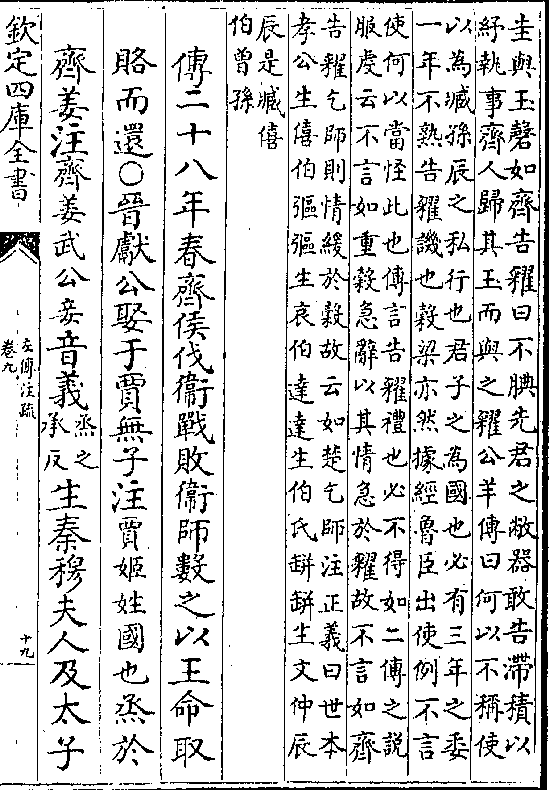 圭與玉磬如齊告糴曰不腆先君之敝器敢告滯積以
紓執事齊人歸其玉而與之糴公羊傳曰何以不稱使
以為臧孫辰之私行也君子之為國也必有三年之委
一年不熟告糴譏也穀梁亦然據經魯臣出使例不言
使何以當怪此也傳言告糴禮也必不得如二傳之說
服虔云不言如重穀急辭以其情急於糴故不言如齊
告糴乞師則情緩於穀故云如楚乞師注正義曰世本
孝公生僖伯彄彄生哀伯達達生伯氏缾缾生文仲辰
辰是臧僖
伯曾孫
傳二十八年春齊侯伐衞戰敗衞師數之以王命取
賂而還○晉獻公娶于賈無子注賈姬姓國也烝於
齊姜注齊姜武公妾音義烝之
承反生秦穆夫人及太子
欽定四庫全書
左傳注疏
卷九
十九